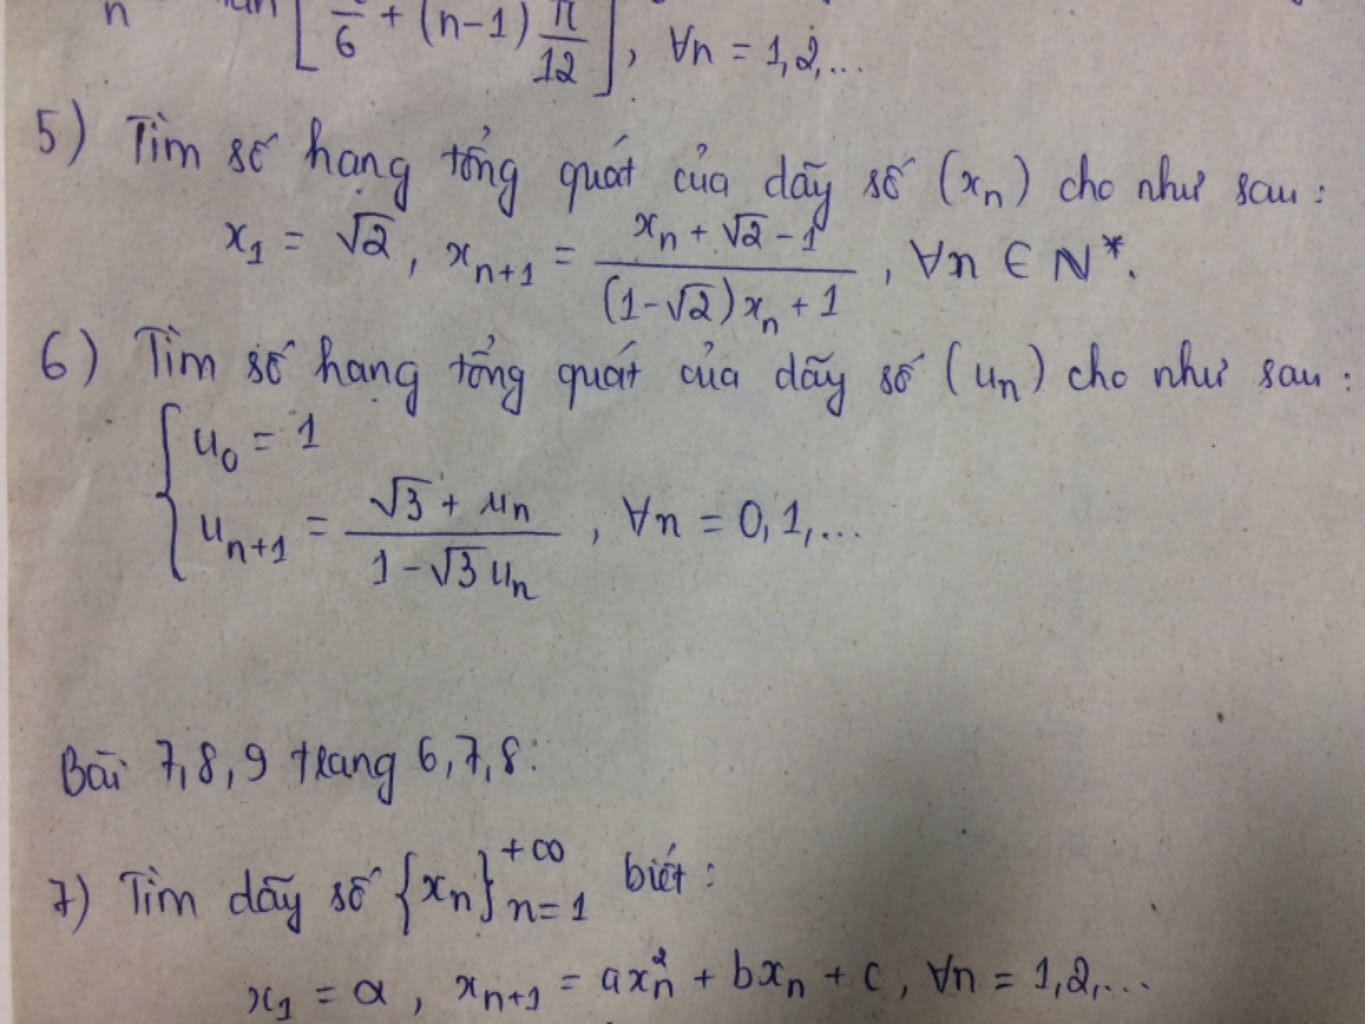 n [ /6 + (n-1) π/12 ], ∀n = 1,2,...
5) Tìm số hạng tổng quát của dãy số (xₙ) cho như sau:
x₁ = √2, xₙ₊₁ = (xₙ + √2 - 1) / ((1-√2)xₙ + 1), ∀n ∈ N*.
6) Tìm số hạng tổng quát của dãy số (uₙ) cho như sau:
u₀ = 1
uₙ₊₁ = (√3 + uₙ) / (1 - √3 uₙ), ∀n = 0,1,...
Bài 7,8,9 trang 6,7,8:
7) Tìm dãy số {xₙ}ₙ₌₁^{+∞} biết:
x₁ = α, xₙ₊₁ = axₙ² + bxₙ + c, ∀n = 1,2,...